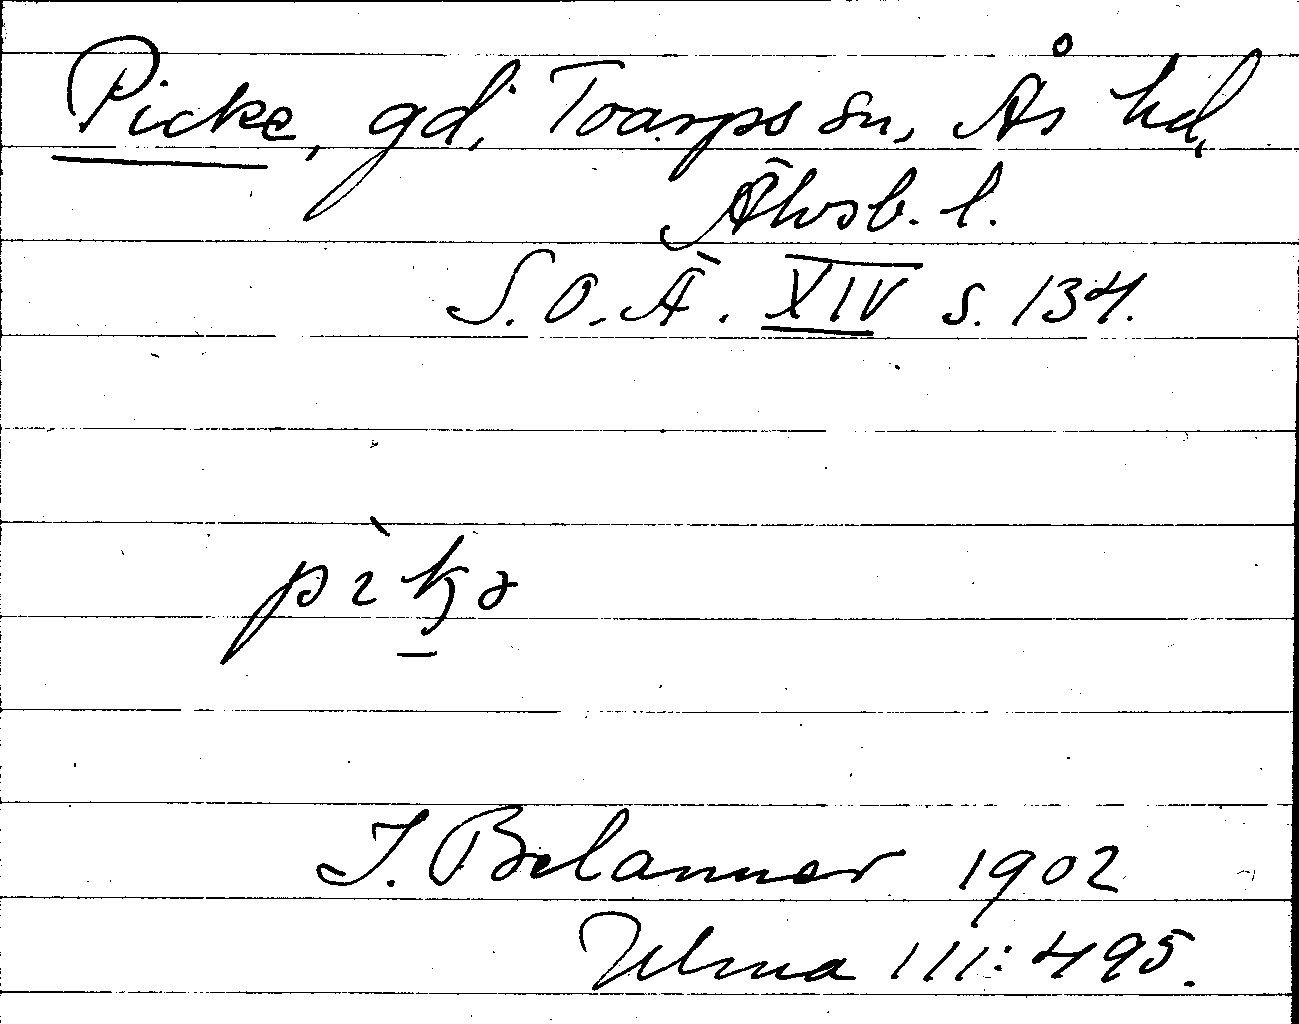 Picke, gd, Toarps sn, Ås hd,
Älvsb. l.
S.O.Ä. XIV s. 134.
J. Belanner 1902
Ulma 111:495.